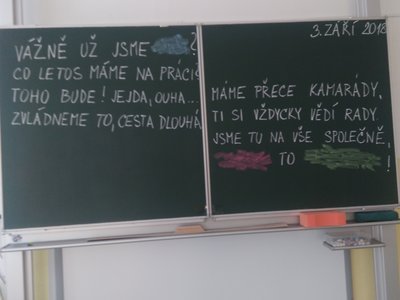 VÁŽNĚ UŽ JSME ?
CO LETOS MÁME NA PRÁCI?
TOHO BUDE! JEJDA, OUHA...
ZVLÁDNEME TO, CESTA DLOUHÁ.
3. ZÁŘÍ 2018
MÁME PŘECE KAMARÁDY,
TI SI VŽDYCKY VĚDÍ RADY.
JSME TU NA VŠE SPOLEČNĚ,
TO !